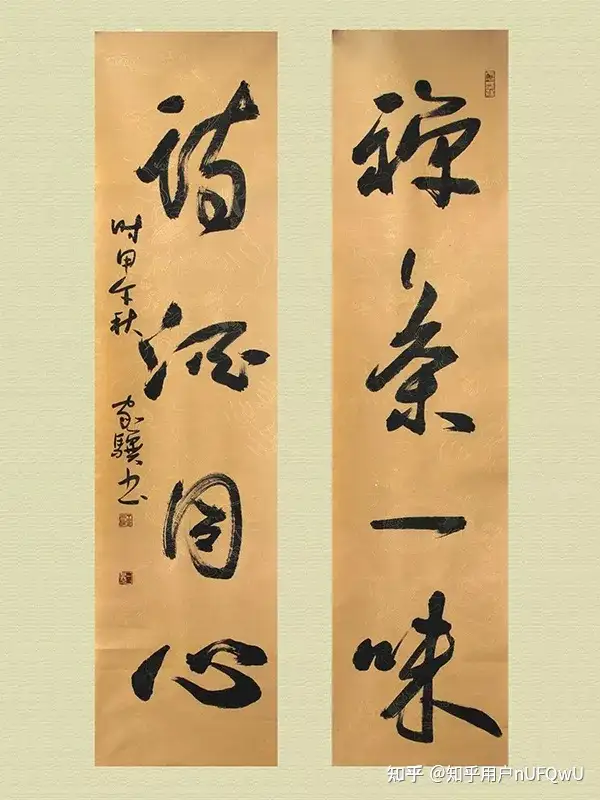 禅茶一味
诗酒同心
时甲午秋
家骥书
知乎 @知乎用户nUFQwU